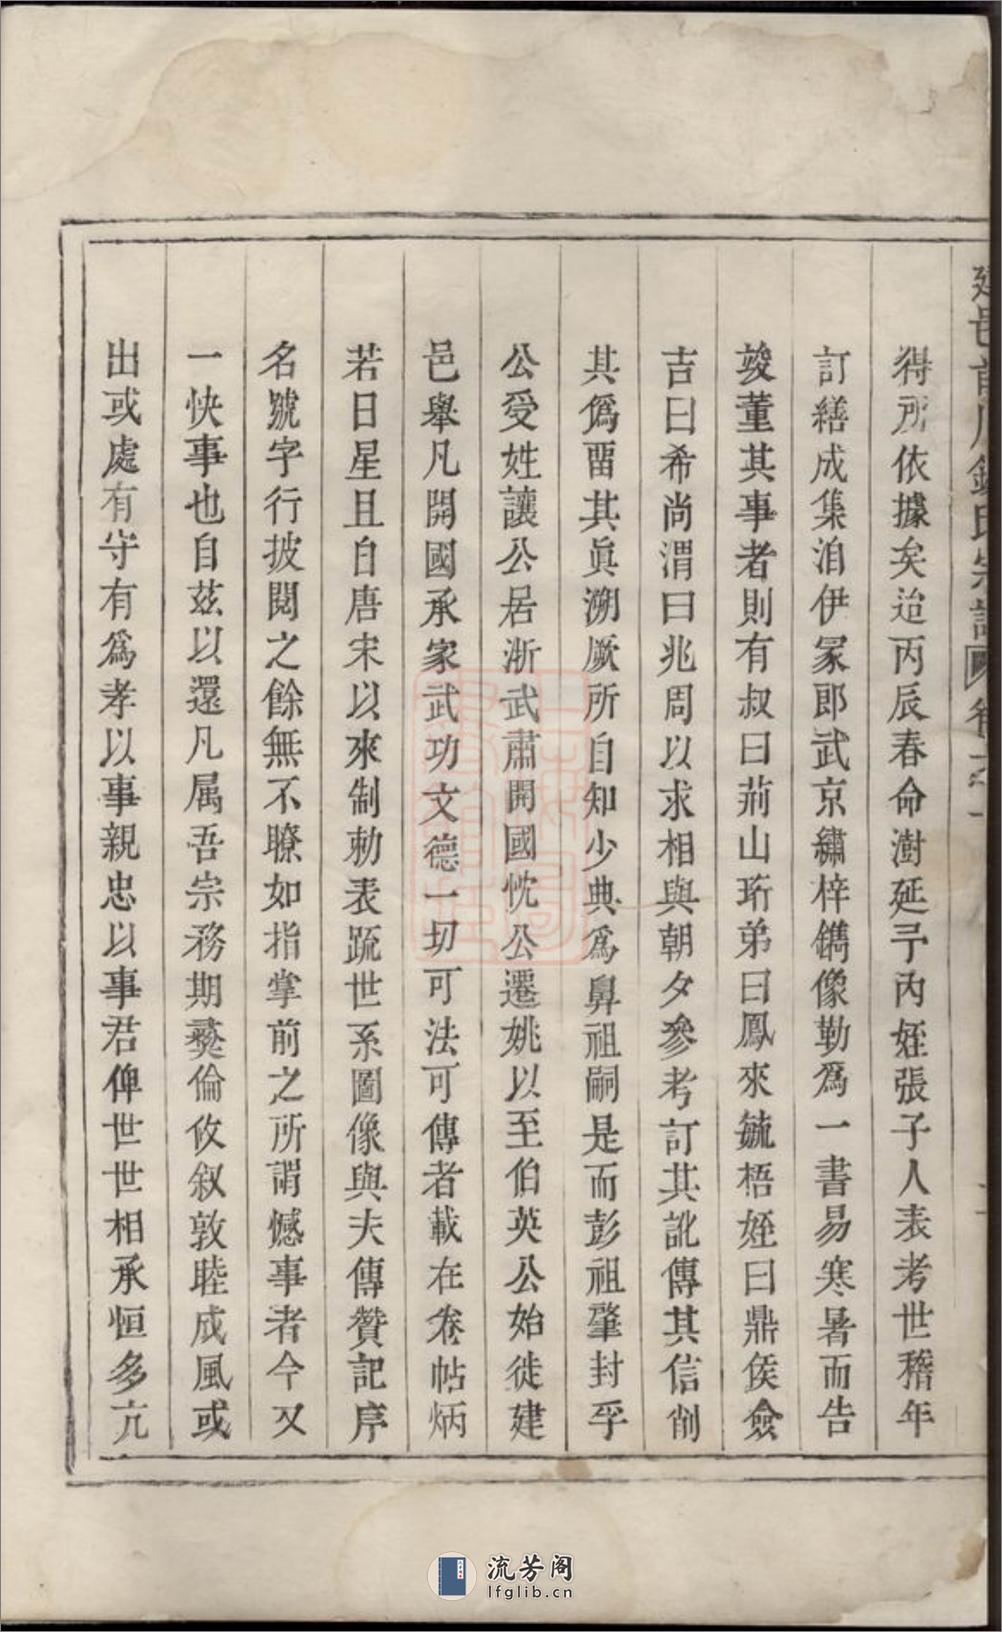 得所依據矣迨丙辰春命澍延予內姪張子人表考世稽年
訂繕成集洎伊冢郎武京繡梓鐫像勒為一書易寒暑而告
竣董其事者則有叔曰荊山珩弟曰鳳來毓梧姪曰鼎侯僉
吉曰希尚渭曰兆周以求相與朝夕參考訂其訛傳其信削
其偽畱其眞溯厥所自知少典為鼻祖嗣是而彭祖肇封孚
公受姓讓公居浙武肅開國忱公遷姚以至伯英公始徙建
邑舉凡開國承家武功文德一切可法可傳者載在卷帖炳
若日星且自唐宋以來制勅表疏世系圖像與夫傳贊記序
名號字行披閱之餘無不瞭如指掌前之所謂憾事者今又
一快事也自茲以還凡属吾宗務期彜倫攸叙敦睦成風或
出或處有守有為孝以事親忠以事君俾世世相承恒多亢
流芳阁
lfglib.cn